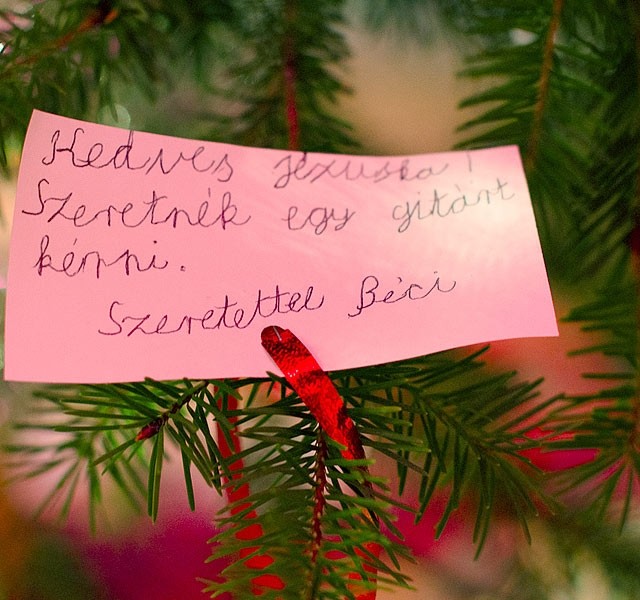 Kedves Jézuska!
Szeretnék egy gitárt
kérni.
Szeretettel Béci